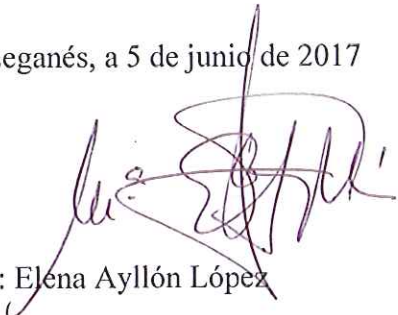 eganés, a 5 de junio de 2017
: Elena Ayllón López